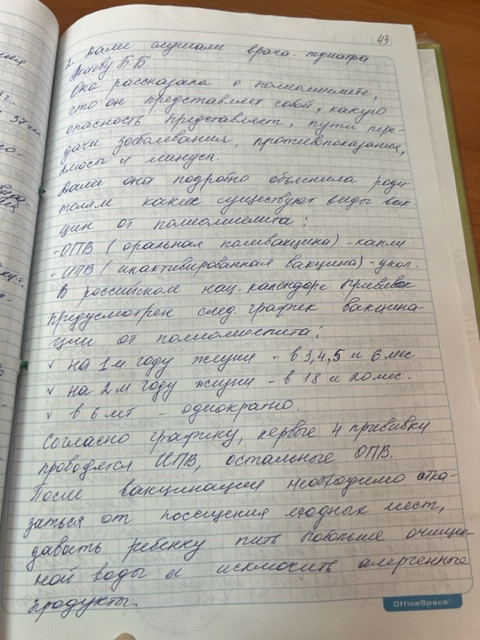 43
2. Далее слушали врача-педиатра
Б.В
Она рассказала о полиомиелите,
что он представляет собой, какую
опасность представляет, пути пере-
дачи заболевания, противопоказания,
плюсы и минусы.
Далее она подробно объяснила роди-
телям какие существуют виды вак-
цин от полиомиелита:
-ОПВ (оральная поливакцина) -капли
-ИПВ (инактивированная вакцина) -укол.
В российском нац. календаре прививок
предусмотрен след. график вакцина-
ции от полиомиелита:
v на 1м году жизни - в 3,4,5 и 6 мес.
v на 2м году жизни - в 18 и 20 мес.
v в 6 лет - однократно.
Согласно графику, первые 4 прививки
проводятся ИПВ, остальные ОПВ.
После вакцинации необходимо отка-
заться от посещения людных мест,
давать ребенку пить побольше очищен-
ной воды и исключить алергенные
продукты.
OfficeSpace